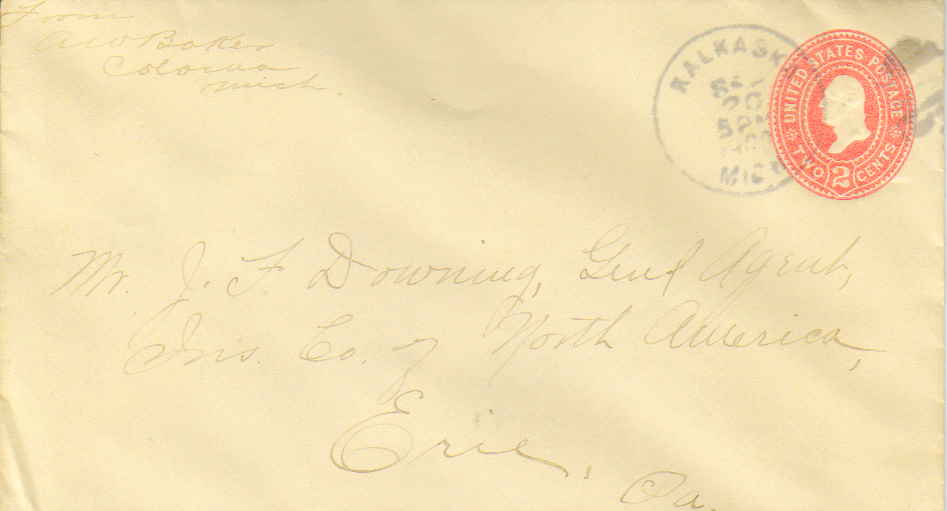 From
A W Baker
Coloma
Mich.
KALKASKA
20
5 PM
MICH
UNITED STATES POSTAGE
TWO 2 CENTS
Mr. J. F. Downing, Genl Agent,
Ins. Co. of North America,
Erie,
Pa.